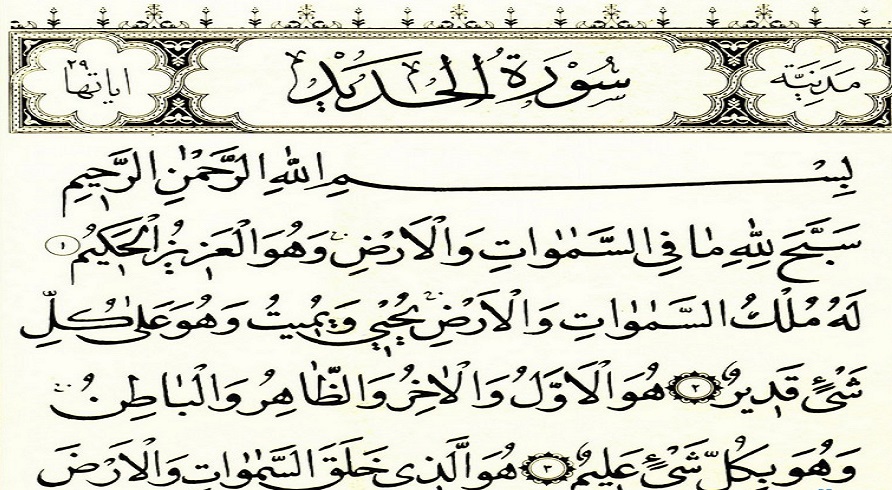 مَدَنِيَّة سُورَةُ الْحَدِيدِ اياتها ٢٩
بِسْمِ اللّٰهِ الرَّحْمٰنِ الرَّحِيمِ
سَبَّحَ لِلّٰهِ مَا فِي السَّمٰوَاتِ وَالْاَرْضِ وَهُوَ الْعَزِيزُ الْحَكِيمُ ١
لَهُ مُلْكُ السَّمٰوَاتِ وَالْاَرْضِ يُحْيٖي وَيُمِيتُ وَهُوَ عَلٰى كُلِّ
شَيْءٍ قَدِيرٌ ٢ هُوَ الْاَوَّلُ وَالْاٰخِرُ وَالظَّاهِرُ وَالْبَاطِنُ
وَهُوَ بِكُلِّ شَيْءٍ عَلِيمٌ ٣ هُوَ الَّذِي خَلَقَ السَّمٰوَاتِ وَالْاَرْضَ